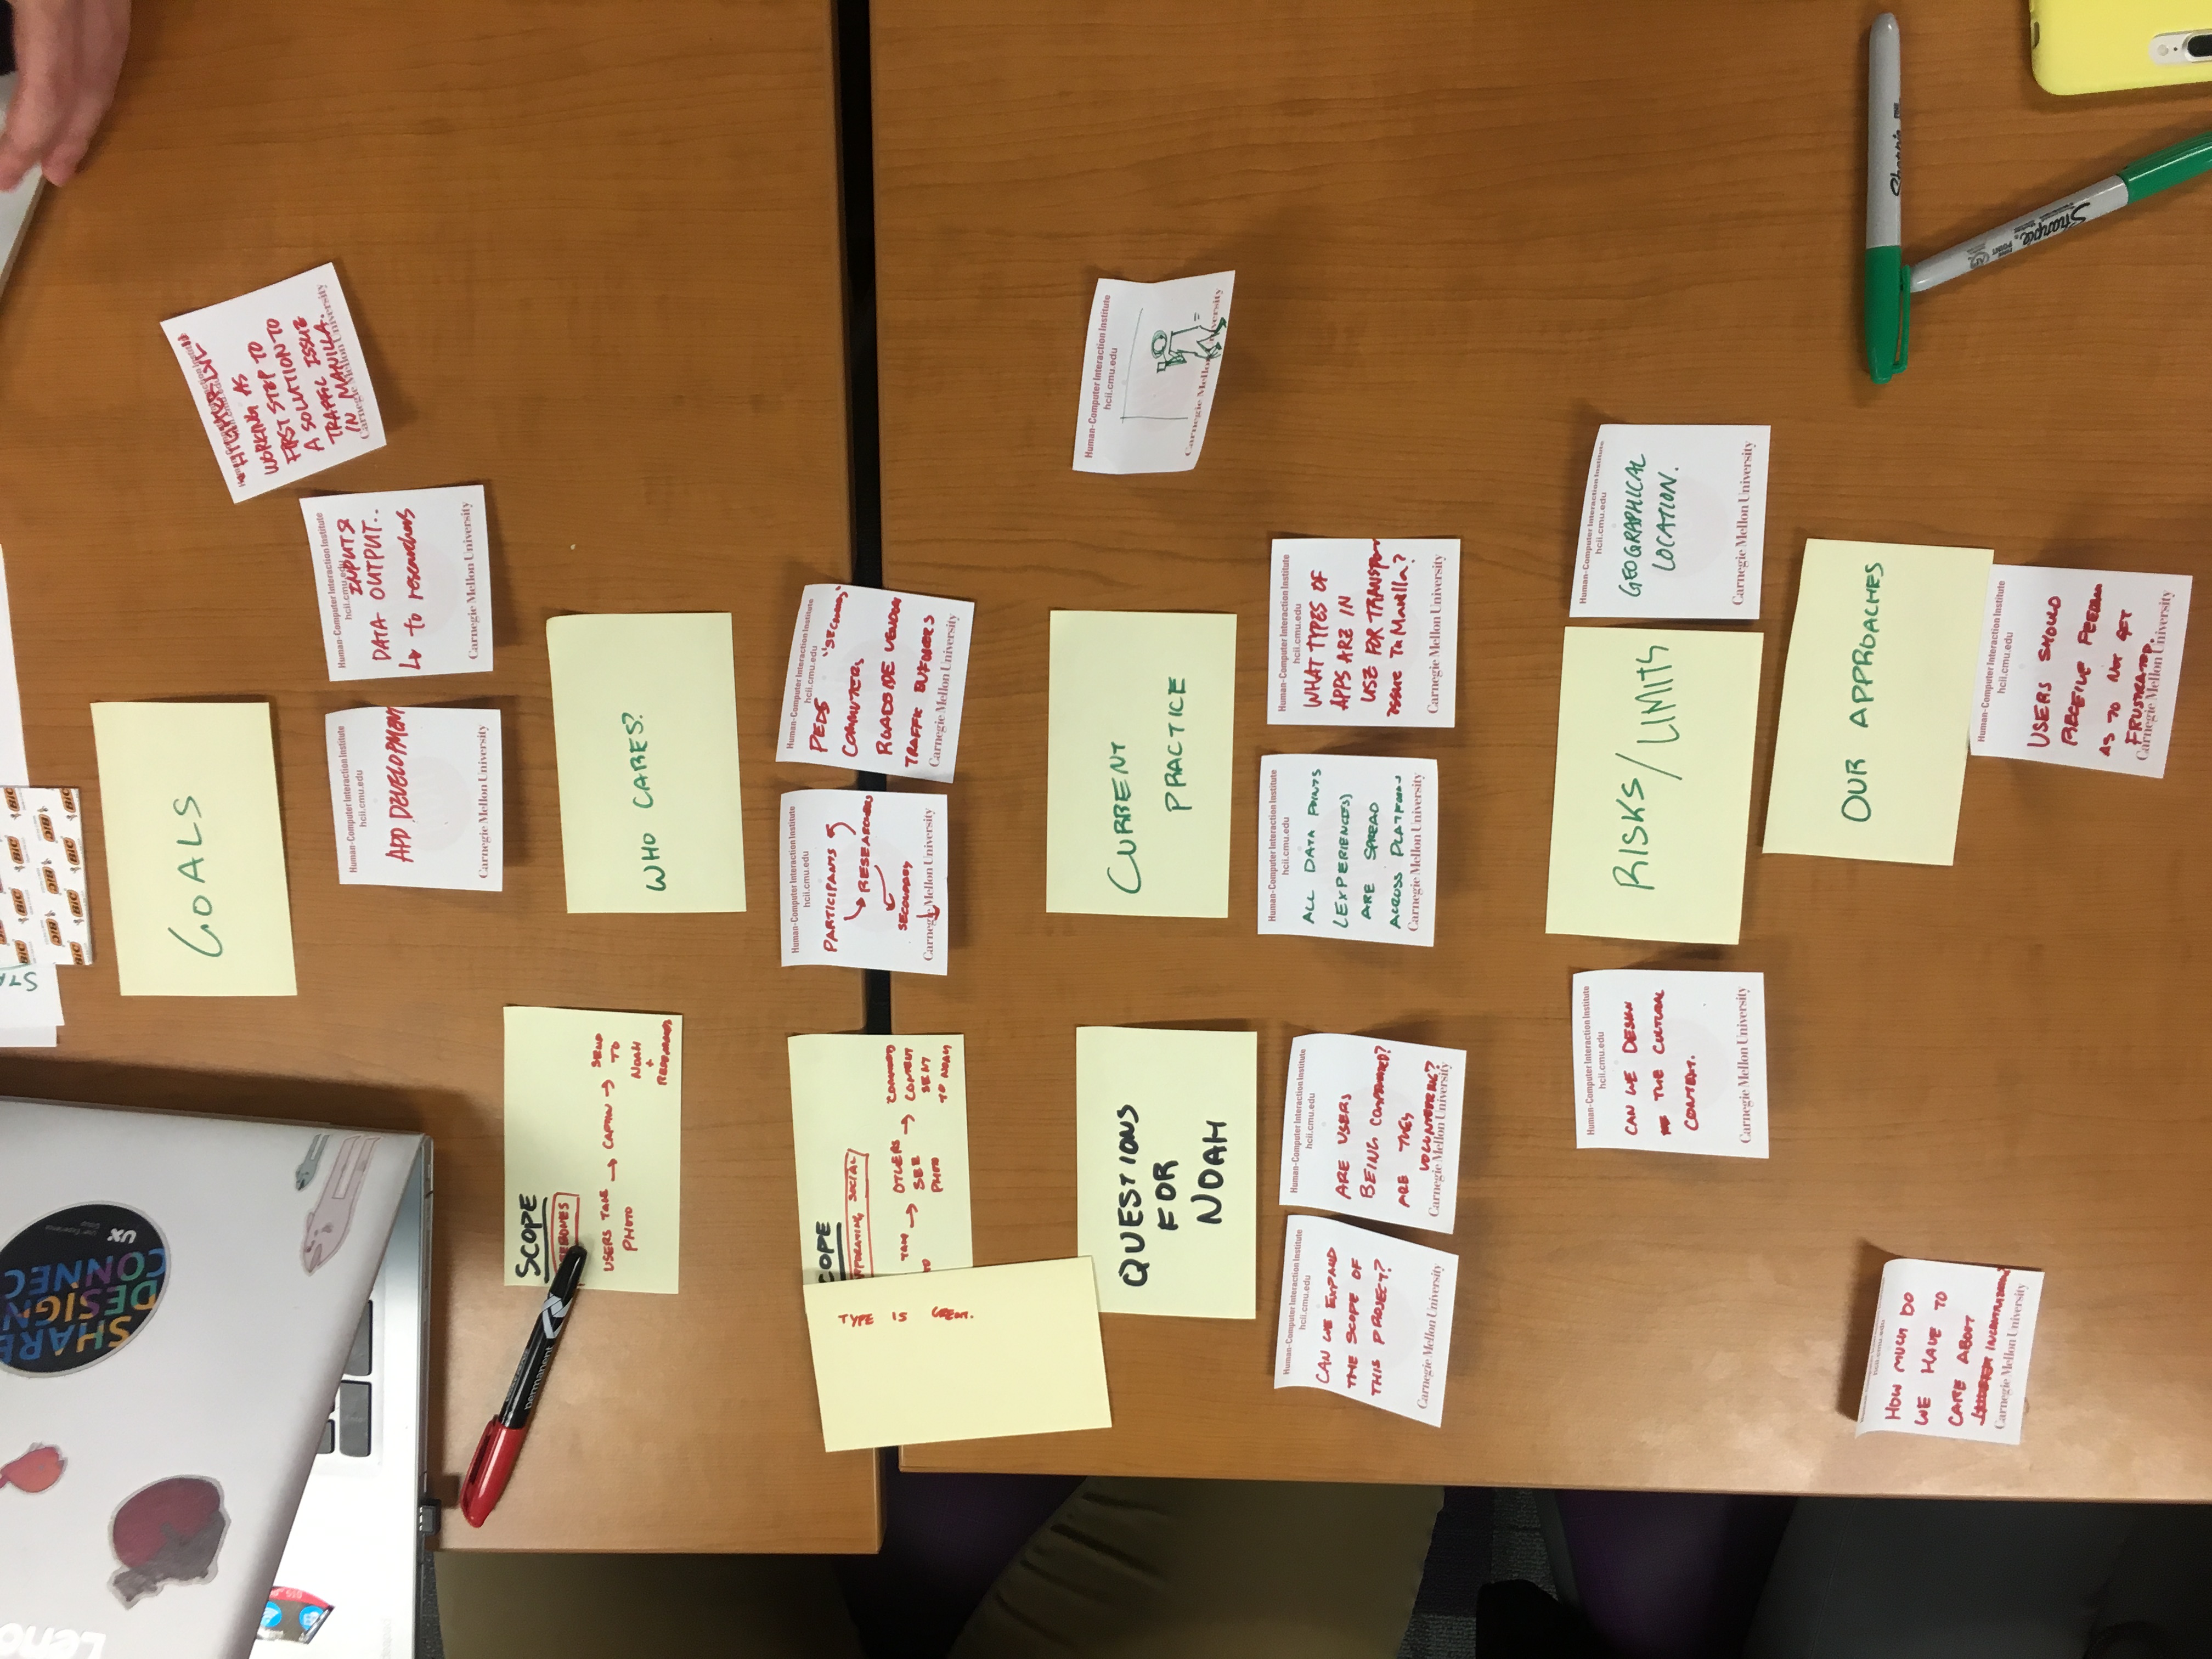 Leno
SHARE
DESIGN
CONNEC
UX
BIC
GOALS
Human-Computer Interaction Institute
hcii.cmu.edu
"HIGHER LVL"
WORKING AS
FIRST STEP TO
A SOLUTION TO
TRAFFIC ISSUE
IN MANILLA.
Carnegie Mellon University
Human-Computer Interaction Institute
hcii.cmu.edu
APP DEVELOPMENT
Carnegie Mellon University
Human-Computer Interaction Institute
hcii.cmu.edu
INPUT &
DATA OUTPUT..
↳ to researchers
Carnegie Mellon University
permanent
SCOPE
EBONES
USERS TAKE → CAPTION → SEND
PHOTO
TO
NOAH
+
RESEARCHERS
WHO CARES?
COPE
RPORATING SOCIAL
TAKE → OTHERS → COMBINED
SEE CONTENT
PHOTO SENT
TO NOAH
TYPE IS GREAT.
Human-Computer Interaction Institute
hcii.cmu.edu
PARTICIPANTS
RESEARCHERS
SECONDARY
Carnegie Mellon University
Human-Computer Interaction Institute
hcii.cmu.edu
PEDS "SECONDARY"
COMMUTERS
ROADSIDE VENDORS
TRAFFIC ENFORCERS
Carnegie Mellon University
QUESTIONS
FOR
NOAH
CURRENT
PRACTICE
Human-Computer Interaction Institute
hcii.cmu.edu
Carnegie Mellon University
Human-Computer Interaction Institute
hcii.cmu.edu
CAN WE EXPAND
THE SCOPE OF
THIS PROJECT?
Carnegie Mellon University
Human-Computer Interaction Institute
hcii.cmu.edu
ARE USERS
BEING COMPENSATED?
ARE THEY
VOLUNTEERING?
Carnegie Mellon University
Human-Computer Interaction Institute
hcii.cmu.edu
ALL DATA POINTS
(EXPERIENCES)
ARE SPREAD
ACROSS PLATFORMS
Carnegie Mellon University
Human-Computer Interaction Institute
hcii.cmu.edu
WHAT TYPES OF
APPS ARE IN
USE FOR TRANSPOR
issue In Manilla?
Carnegie Mellon University
Human-Computer Interaction Institute
hcii.cmu.edu
CAN WE DESIGN
THE CULTURAL
CONTEXT.
Carnegie Mellon University
RISKS/LIMITS
Human-Computer Interaction Institute
hcii.cmu.edu
GEOGRAPHICAL
LOCATION.
Carnegie Mellon University
OUR APPROACHES
Human-Computer Interaction Institute
hcii.cmu.edu
HOW MUCH DO
WE HAVE TO
CARE ABOUT
Carnegie Mellon University
Sharpie
Sharpie
Human-Computer Interaction Institute
hcii.cmu.edu
USERS SHOULD
RECEIVE FEEDBACK
AS TO NOT GET
FRUSTRATED.
Carnegie Mellon University